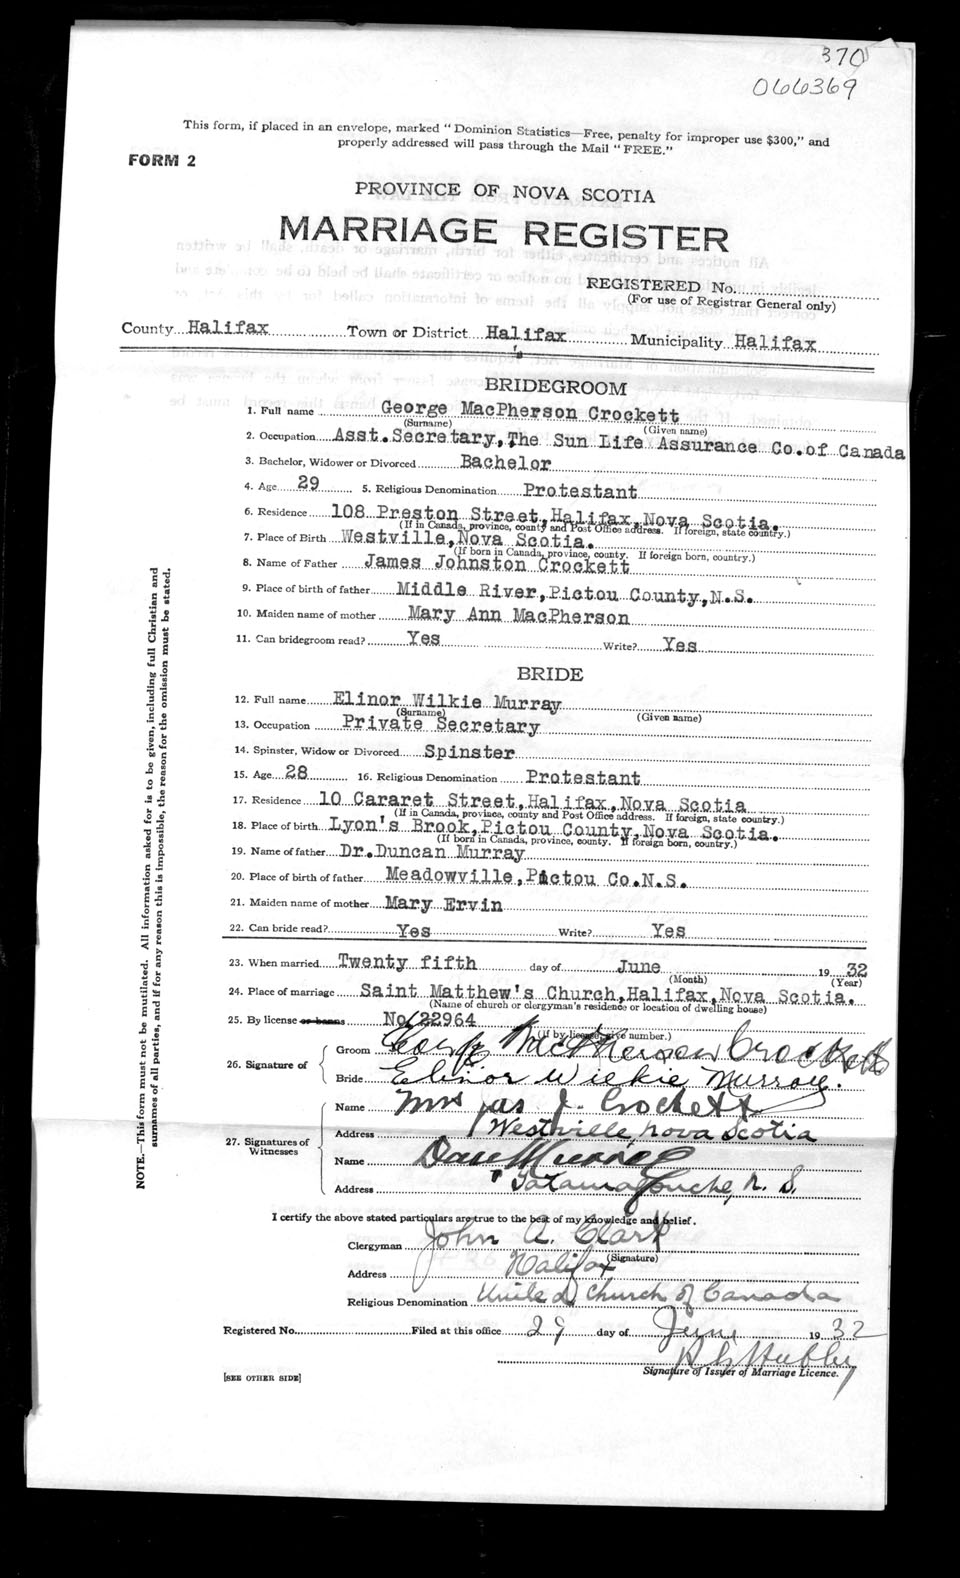 370
066369
This form, if placed in an envelope, marked "Dominion Statistics—Free, penalty for improper use $300," and
properly addressed will pass through the Mail "FREE."
FORM 2
PROVINCE OF NOVA SCOTIA
MARRIAGE REGISTER
REGISTERED No.
(For use of Registrar General only)
County Halifax Town or District Halifax Municipality Halifax
BRIDEGROOM
1. Full name George MacPherson Crockett
(Surname) (Given name)
2. Occupation Asst. Secretary, The Sun Life Assurance Co. of Canada
3. Bachelor, Widower or Divorced Bachelor
4. Age 29 5. Religious Denomination Protestant
6. Residence 108 Preston Street, Halifax, Nova Scotia.
(If in Canada, province, county and Post Office address. If foreign, state country.)
7. Place of Birth Westville, Nova Scotia.
(If born in Canada, province, county. If foreign born, country.)
8. Name of Father James Johnston Crockett
9. Place of birth of father Middle River, Pictou County, N.S.
10. Maiden name of mother Mary Ann MacPherson
11. Can bridegroom read? Yes Write? Yes
BRIDE
12. Full name Elinor Wilkie Murray
(Surname) (Given name)
13. Occupation Private Secretary
14. Spinster, Widow or Divorced Spinster
15. Age 28 16. Religious Denomination Protestant
17. Residence 10 Cararet Street, Halifax, Nova Scotia
(If in Canada, province, county and Post Office address. If foreign, state country.)
18. Place of birth Lyon's Brook, Pictou County, Nova Scotia.
(If born in Canada, province, county. If foreign born, country.)
19. Name of father Dr. Duncan Murray
20. Place of birth of father Meadowville, Pictou Co. N.S.
21. Maiden name of mother Mary Ervin
22. Can bride read? Yes Write? Yes
23. When married Twenty fifth day of June 1932
(Month) (Year)
24. Place of marriage Saint Matthew's Church, Halifax, Nova Scotia.
(Name of church or clergyman's residence or location of dwelling house)
25. By license or banns No. 22964
(If by license, give number.)
26. Signature of
Groom George McPherson Crockett
Bride Elinor Wilkie Murray.
27. Signatures of Witnesses
Name Mrs Jas J. Crockett
Address Westville, Nova Scotia
Name Dan Murray
Address Tatamagouche, N. S.
I certify the above stated particulars are true to the best of my knowledge and belief.
Clergyman John A. Clark
(Signature)
Address Halifax
Religious Denomination United Church of Canada
Registered No. Filed at this office 29 day of June 1932
Signature of Issuer of Marriage Licence.
[SEE OTHER SIDE]
NOTE.—This form must not be mutilated. All information asked for is to be given, including full Christian and
surnames of all parties, and if for any reason this is impossible, the reason for the omission must be stated.